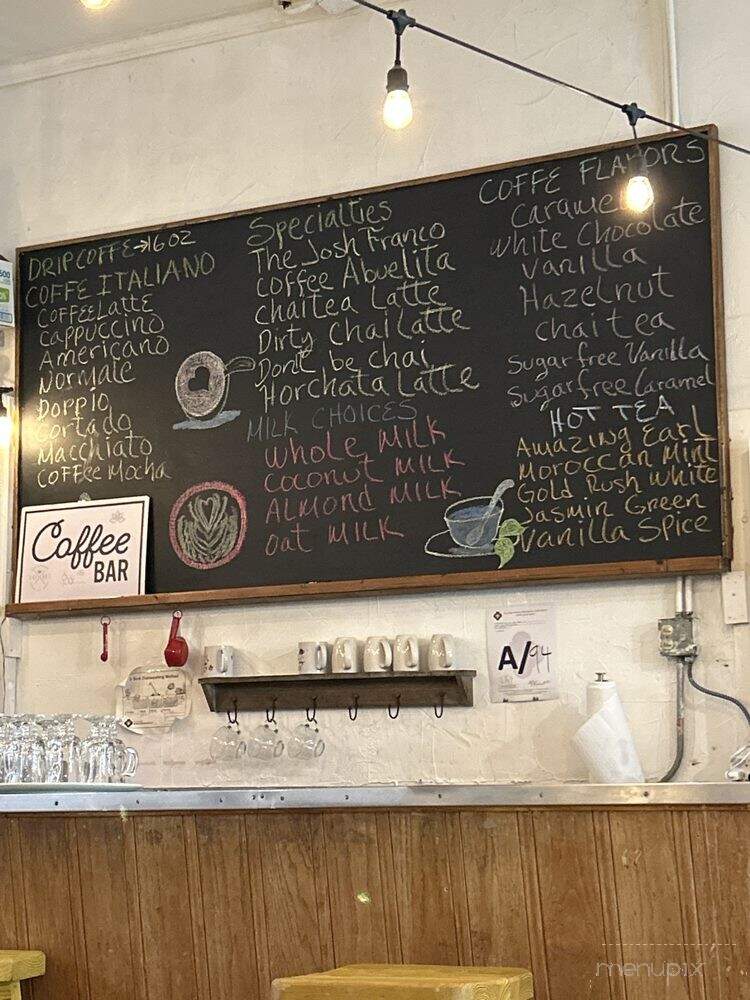 DRIP COFFE→16oz
COFFE ITALIANO
COFFEE LATTE
cappuccino
Americano
Normale
Doppio
Cortado
Macchiato
COFFEE Mocha
Specialties
The Josh Franco
coffee Abuelita
chaitea Latte
Dirty Chai Latte
Don't be chai
Horchata Latte
MILK CHOICES
whole MILK
coconut MILK
ALMOND MILK
oat MILK
COFFE FLAVORS
Caramel
white Chocolate
vanilla
Hazelnut
chai tea
Sugar free Vanilla
Sugar free Caramel
HOT TEA
Amazing Earl
Moroccan Mint
Gold Rush White
Jasmin Green
Vanilla Spice
Coffee
BAR
A/94
menupix